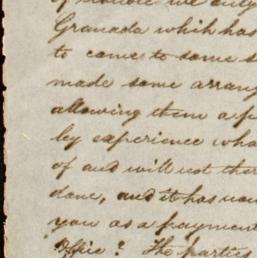 of trouble we only
Granada which has
to come to some s
made some arrang
allowing them a p
by experience wha
of and will not ther
done, and it has now
you as a payment
office? The parties